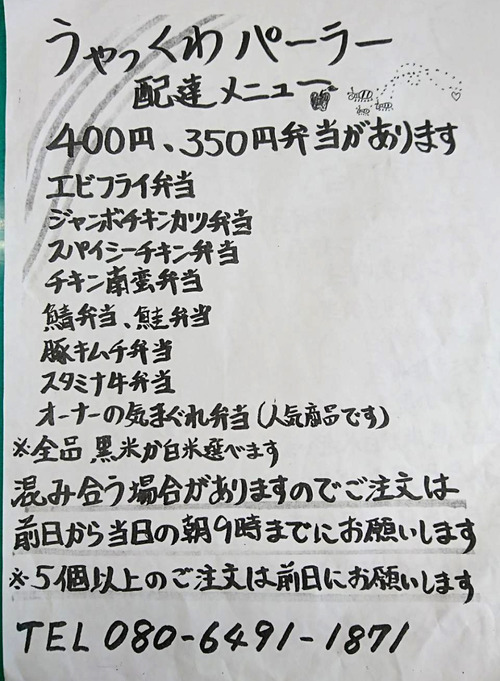 うやっくわパーラー
配達メニュー
400円、350円弁当があります
エビフライ弁当
ジャンボチキンカツ弁当
スパイシーチキン弁当
チキン南蛮弁当
鯖弁当、鮭弁当
豚キムチ弁当
スタミナ牛弁当
オーナーの気まぐれ弁当(人気商品です)
※全品 黒米か白米選べます
混み合う場合がありますのでご注文は
前日から当日の朝9時までにお願いします
※5個以上のご注文は前日にお願いします
TEL 080-6491-1871